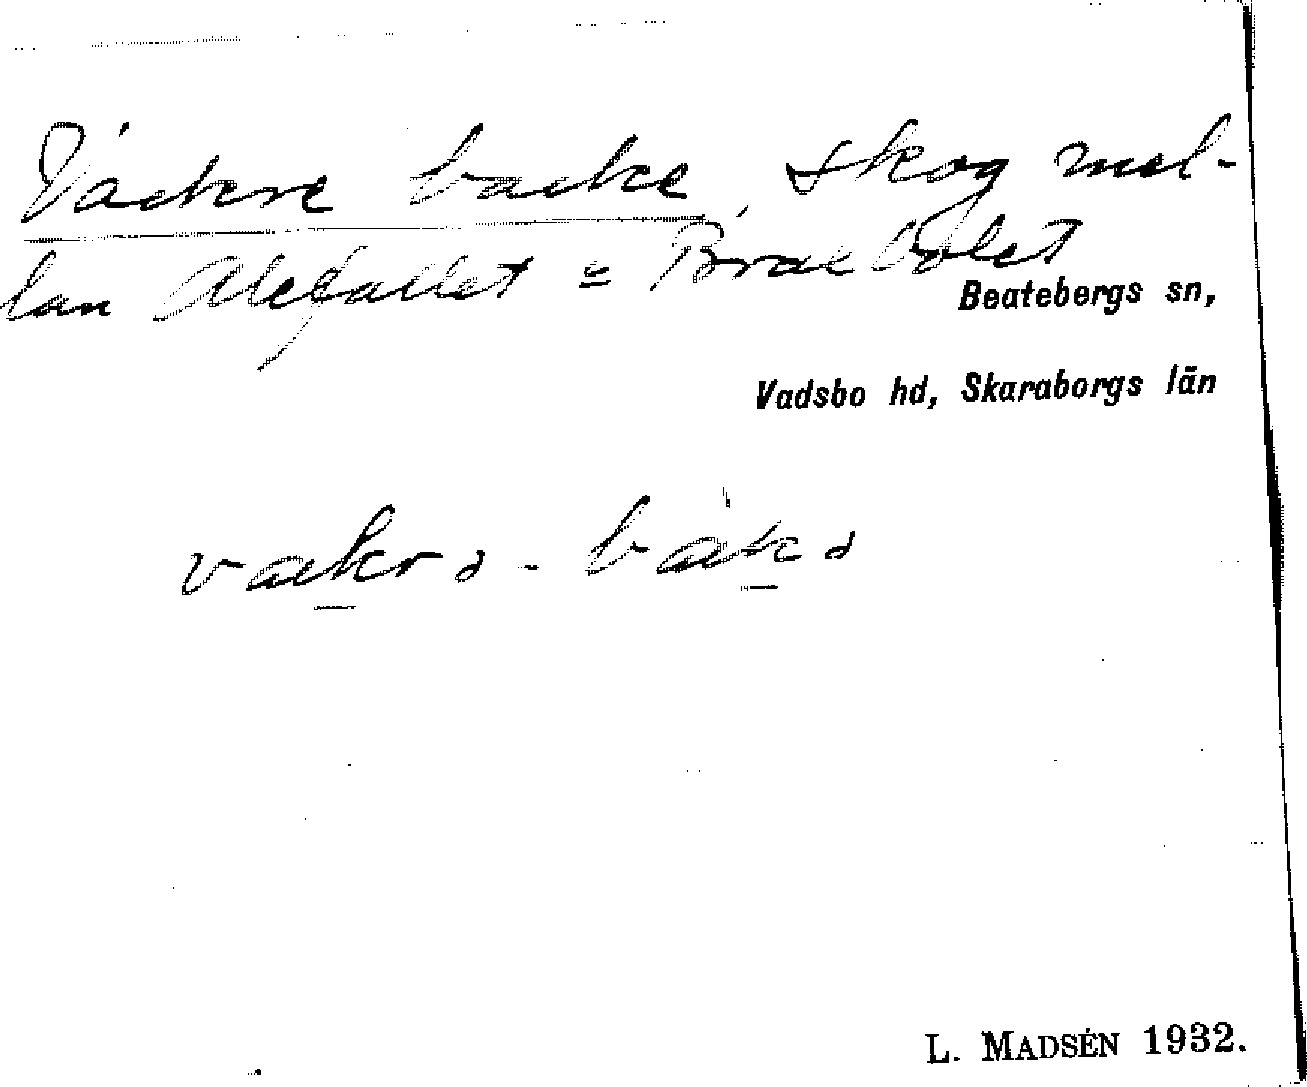 Vackre backe, skog mel-
lan Alefallet o Braebolet
Beatebergs sn,
Vadsbo hd, Skaraborgs län
vakrə - bàkə
L. MADSÉN 1932.